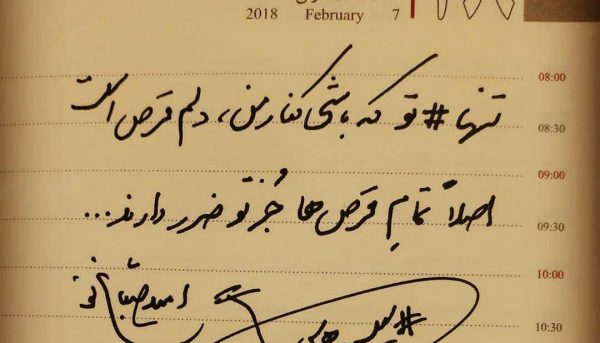 2018 February 7
08:00
تنها #تو که باشی کنار من، دلم قرص است
08:30
09:00
اصلاً تمامِ قرص ها جُز تو ضرر دارند...
09:30
10:00
امید صباغ نو
10:30